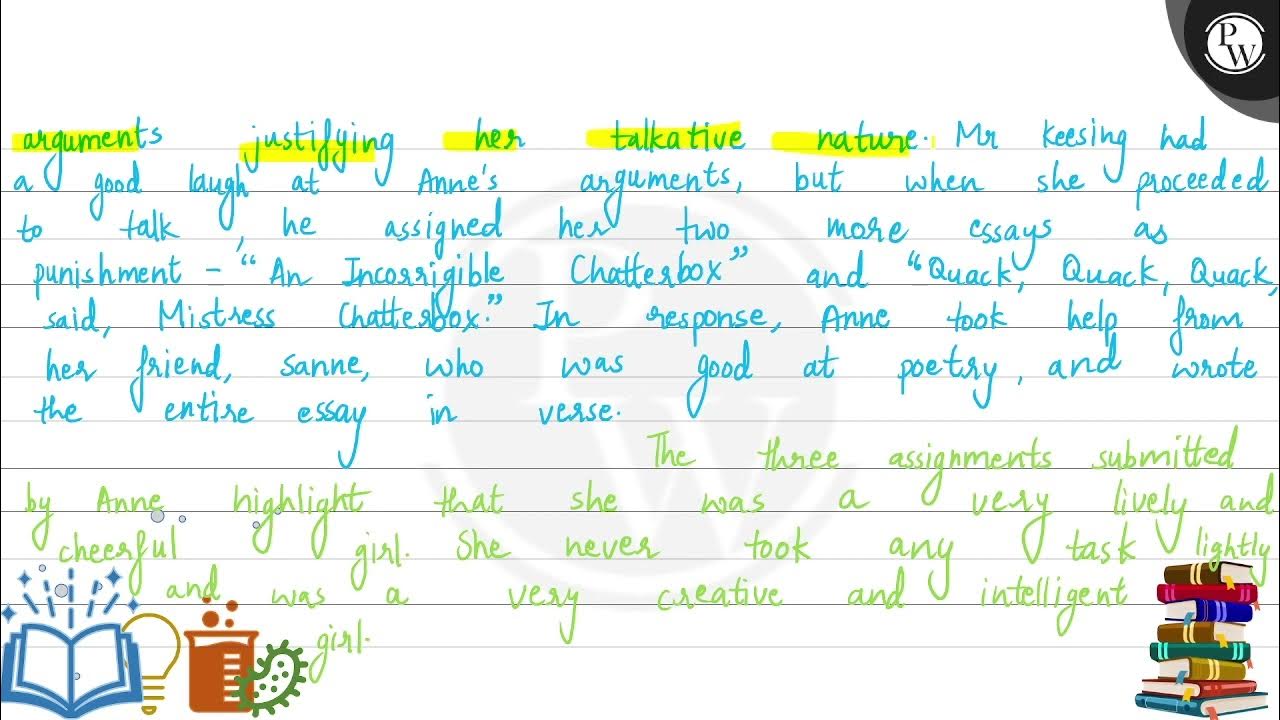 PW
arguments justifying her talkative nature. Mr Keesing had
a good laugh at Anne's arguments, but when she proceeded
to talk, he assigned her two more essays as
punishment - "An Incorrigible Chatterbox" and "Quack, Quack, Quack,
said, Mistress Chatterbox." In response, Anne took help from
her friend, sanne, who was good at poetry, and wrote
the entire essay in verse.
The three assignments submitted
by Anne highlight that she was a very lively and
cheerful girl. She never took any task lightly
and was a very creative and intelligent
girl.